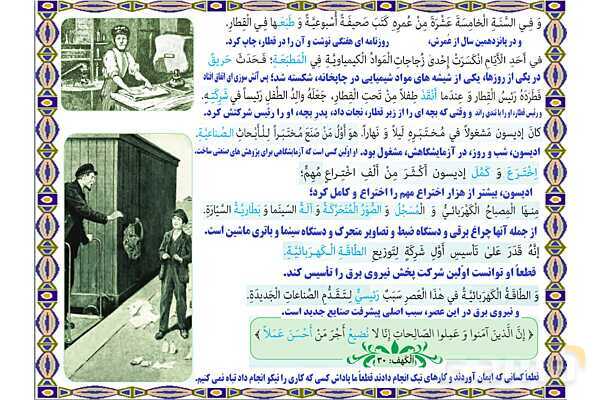 وَ فِي السَّنَةِ الْخَامِسَةَ عَشْرَةَ مِنْ عُمرِهِ كَتَبَ صَحيفَةً أُسْبوعِيَّةً وَ طَبَعَها فِي الْقِطارِ.
و در پانزدهمین سال از عمرش، روزنامه ای هفتگی نوشت و آن را در قطار، چاپ کرد.
في أَحَدِ الْأَيّامِ انْكَسَرَتْ إحْدَى زُجاجاتِ الْمَوادِّ الْكيمياويَّةِ فِي الْمَطبَعَةِ؛ فَحَدَثَ حَريقٌ
در یکی از روزها، یکی از شیشه های مواد شیمیایی در چاپخانه، شکسته شد؛ پس آتش سوزی ای اتفاق افتاد
فَطَرَدَهُ رَئيسُ الْقِطارِ وَ عِندَما أَنْقَذَ طِفلاً مِنْ تَحتِ الْقِطارِ، جَعَلَهُ والِدُ الطِّفلِ رَئيساً في شَرِكَتِهِ.
ورئیس قطار، او را با تندی راند و وقتی که بچه ای را از زیر قطار، نجات داد، پدر بچه، او را رئیس شرکتش کرد.
كانَ إديسون مَشغولاً في مُختَبَرِهِ لَيلاً وَ نَهاراً. هوَ أَوَّلُ مَنْ صَنَعَ مُختَبَراً لِلْأَبْحاثِ الصِّناعيَّةِ.
ادیسون، شب و روز، در آزمایشگاهش، مشغول بود. او اولین کسی است که آزمایشگاهی برای پژوهش های صنعتی ساخت.
اِخْتَرَعَ وَ كَمَّلَ إديسون أَكْثَرَ مِنْ أَلْفِ اخْتِراعٍ مُهِمٍّ؛
ادیسون، بیشتر از هزار اختراع مهم را اختراع و کامل کرد؛
مِنْهَا الْمِصباحُ الْكَهْرَبائيُّ وَ الْمُسَجِّلُ وَ الصُّوَرُ الْمُتَحَرِّكَةُ وَ آلَةُ السِّينَما وَ بَطّاريَّةُ السَّيّارَةِ.
از جمله آنها چراغ برقی و دستگاه ضبط و تصاویر متحرک و دستگاه سینما و باتری ماشین است.
إنَّهُ قَدَرَ عَلَىٰ تَأسيسِ أَوَّلِ شَرِكَةٍ لِتَوزيعِ الطّاقَةِ الْكَهرَبائيَّةِ.
قطعاً او توانست اولین شرکت پخش نیروی برق را تأسیس کند.
وَ الطّاقَةُ الْكَهرَبائيَّةُ في هٰذَا الْعَصرِ سَبَبٌ رَئيسيٌّ لِتَقَدُّمِ الصِّناعاتِ الْجَديدَةِ.
و نیروی برق در این عصر، سبب اصلی پیشرفت صنایع جدید است.
﴿ إنَّ الَّذينَ آمَنوا وَ عَمِلُوا الصّالِحاتِ إنّا لا نُضيعُ أَجْرَ مَنْ أَحْسَنَ عَمَلاً ﴾
(اَلْكَهْف: ٣٠)
قطعاً کسانی که ایمان آوردند و کارهای نیک انجام دادند قطعاً ما پاداش کسی که کاری را نیکو انجام داد تباه نمی کنیم.